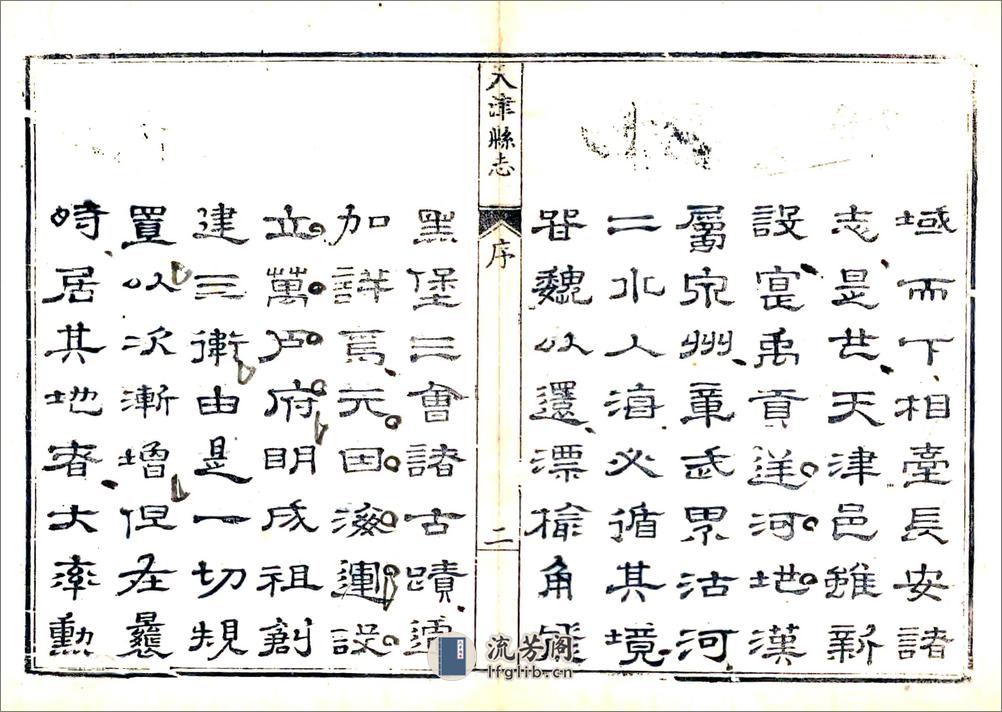 域而下相臺長安諸
志是世天津邑雖新
設寔禹貢逆河地漢
屬泉州章武界沽河
二水入海必循其境
魏以還漂榆角
天津縣志
序
二
黑堡三會諸古蹟
加詳焉元因海運設
立萬戶府明成祖創
建三衛由是一切規
置以次漸增但在曩
時居其地者大率勳
流芳阁
lfglib.cn